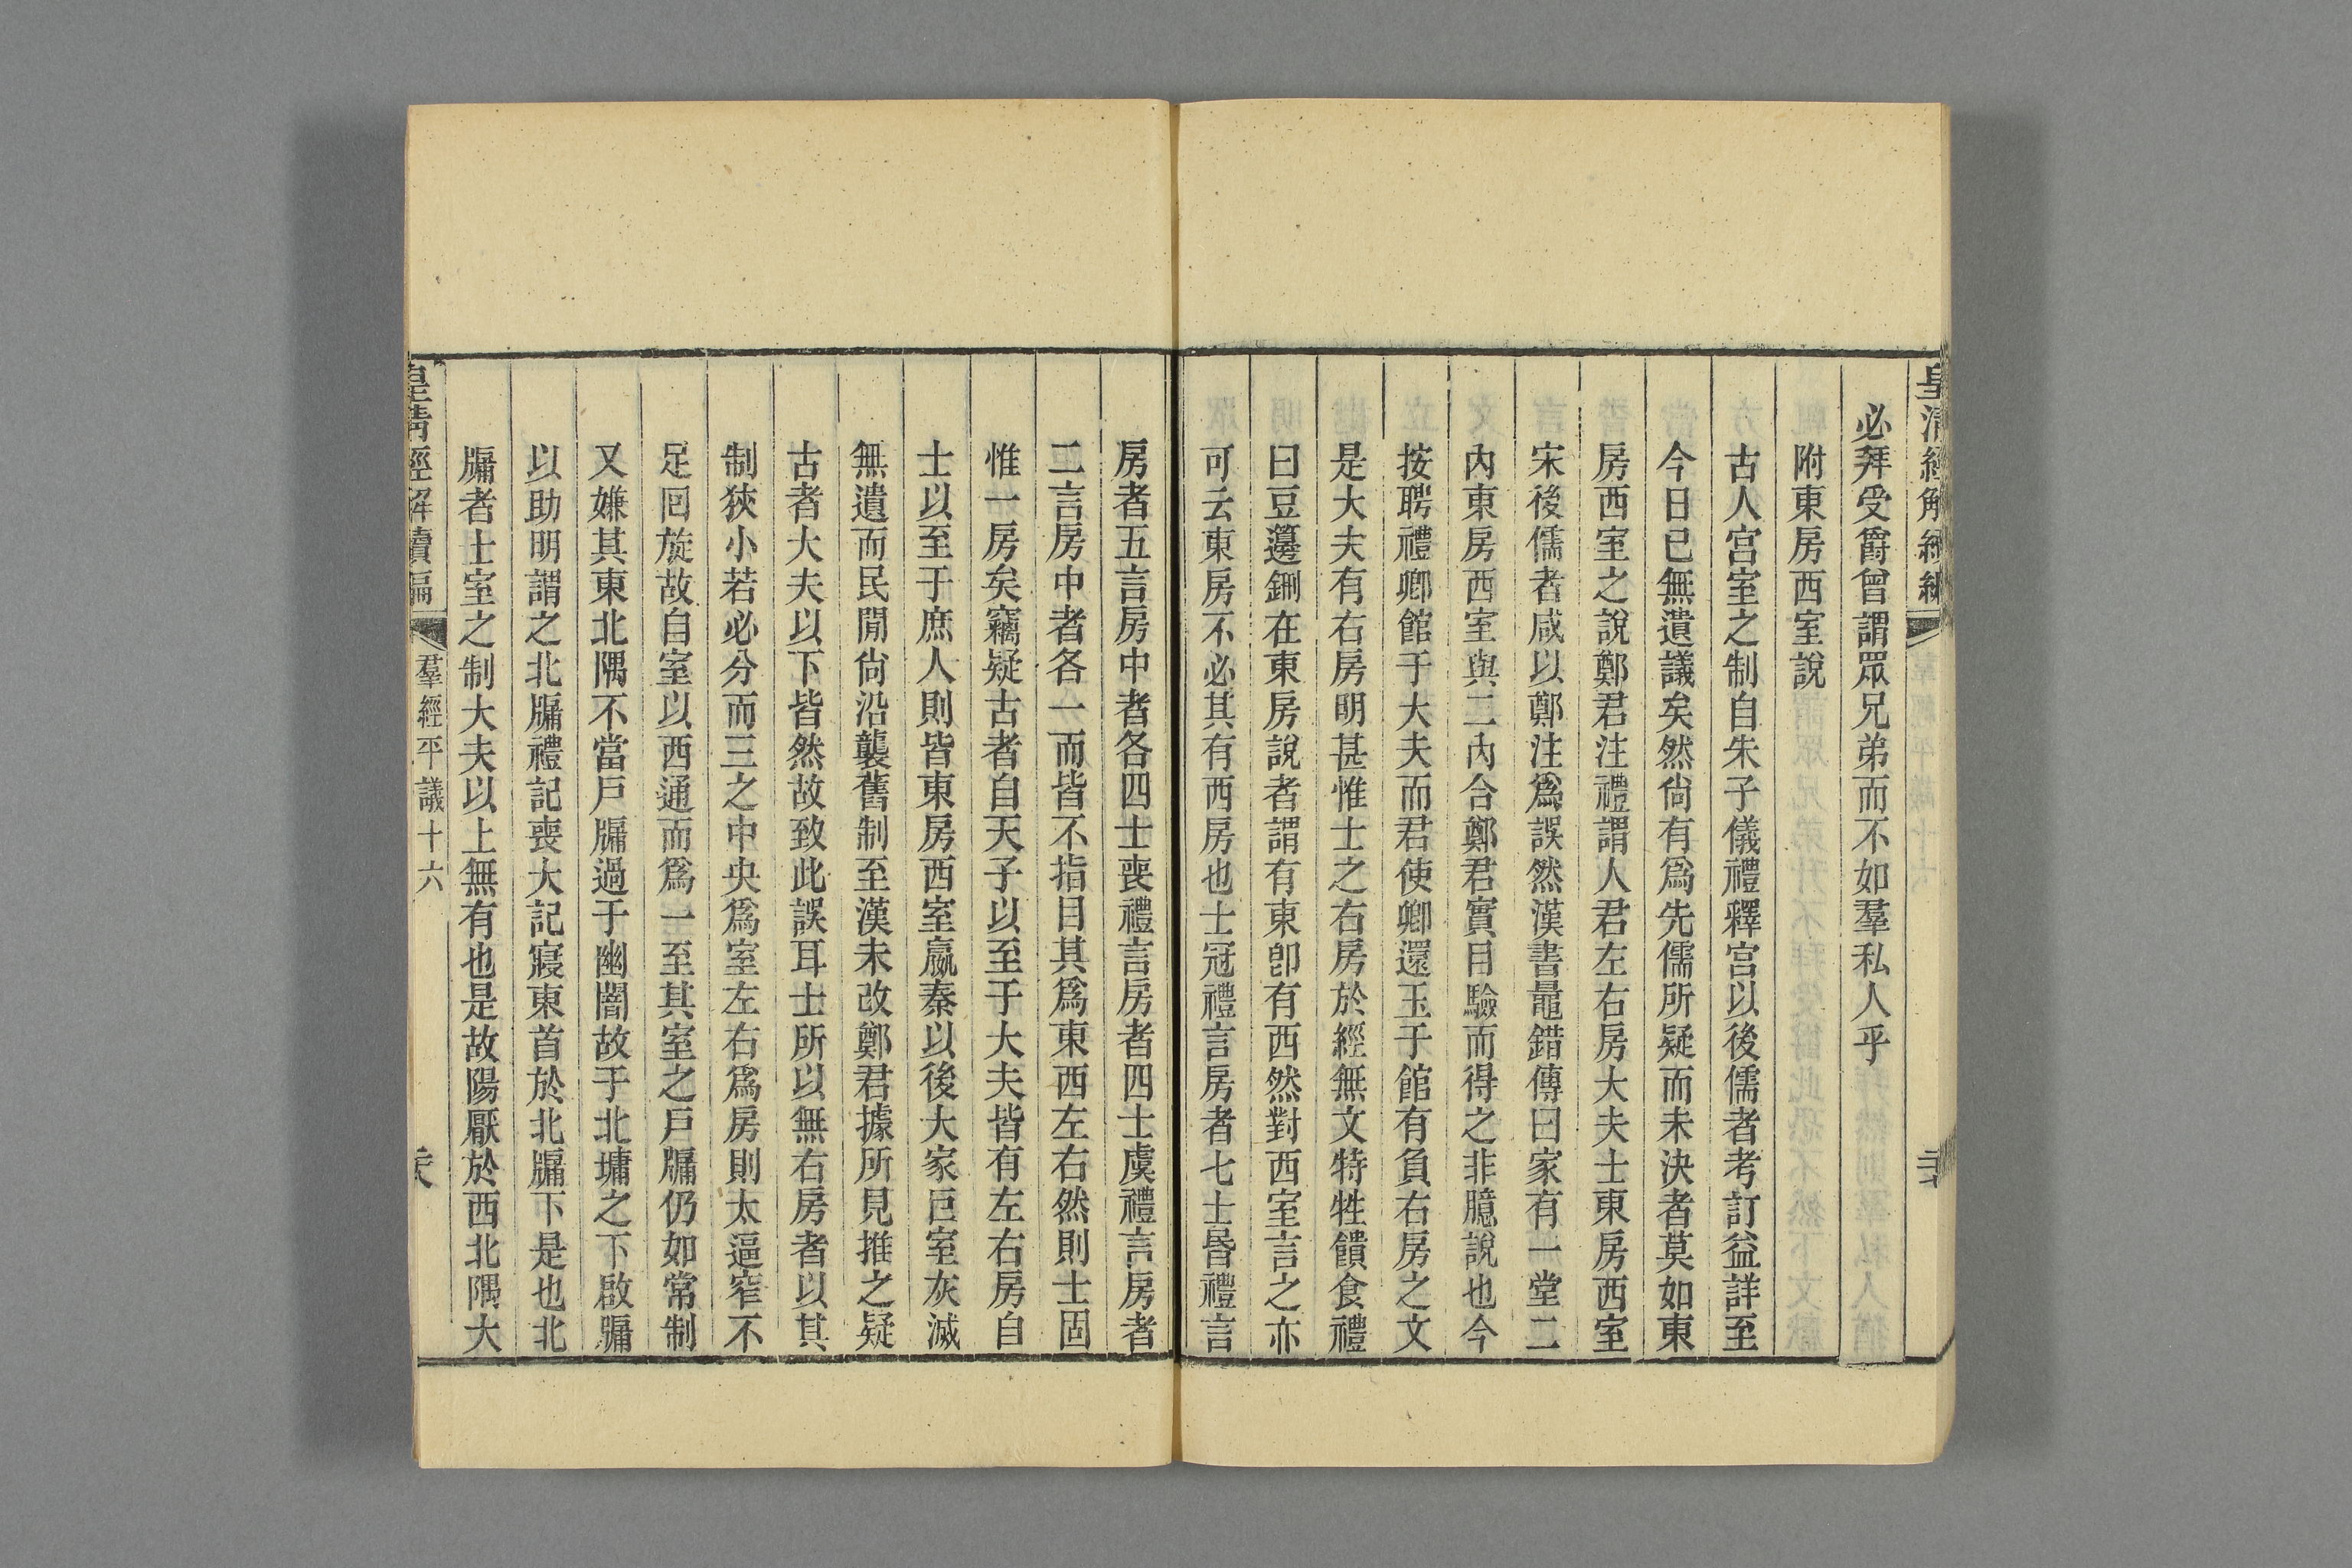 皇清經解續編
必拜受爵曾謂眾兄弟而不如羣私人乎
附東房西室說
古人宮室之制自朱子儀禮釋宮以後儒者考訂益詳至
今日已無遺議矣然尙有爲先儒所疑而未決者莫如東
房西室之說鄭君注禮謂人君左右房大夫士東房西室
宋後儒者咸以鄭注爲誤然漢書鼂錯傳曰家有一堂二
內東房西室與二內合鄭君實目驗而得之非臆說也今
按聘禮卿館于大夫而君使卿還玉于館有負右房之文
是大夫有右房明甚惟士之右房於經無文特牲饋食禮
曰豆籩鉶在東房說者謂有東卽有西然對西室言之亦
可云東房不必其有西房也士冠禮言房者七士昬禮言
房者五言房中者各四士喪禮言房者四士虞禮言房者
二言房中者各一而皆不指目其爲東西左右然則士固
惟一房矣竊疑古者自天子以至于大夫皆有左右房自
士以至于庶人則皆東房西室嬴秦以後大家巨室灰滅
無遺而民閒尙沿襲舊制至漢未改鄭君據所見推之疑
古者大夫以下皆然故致此誤耳士所以無右房者以其
制狹小若必分而三之中央爲室左右爲房則太逼窄不
足回旋故自室以西通而爲一至其室之戶牖仍如常制
又嫌其東北隅不當戶牖過于幽闇故于北墉之下啟牖
以助明謂之北牖禮記喪大記寢東首於北牖下是也北
牖者士室之制大夫以上無有也是故陽厭於西北隅大
皇清經解續編
羣經平議十六